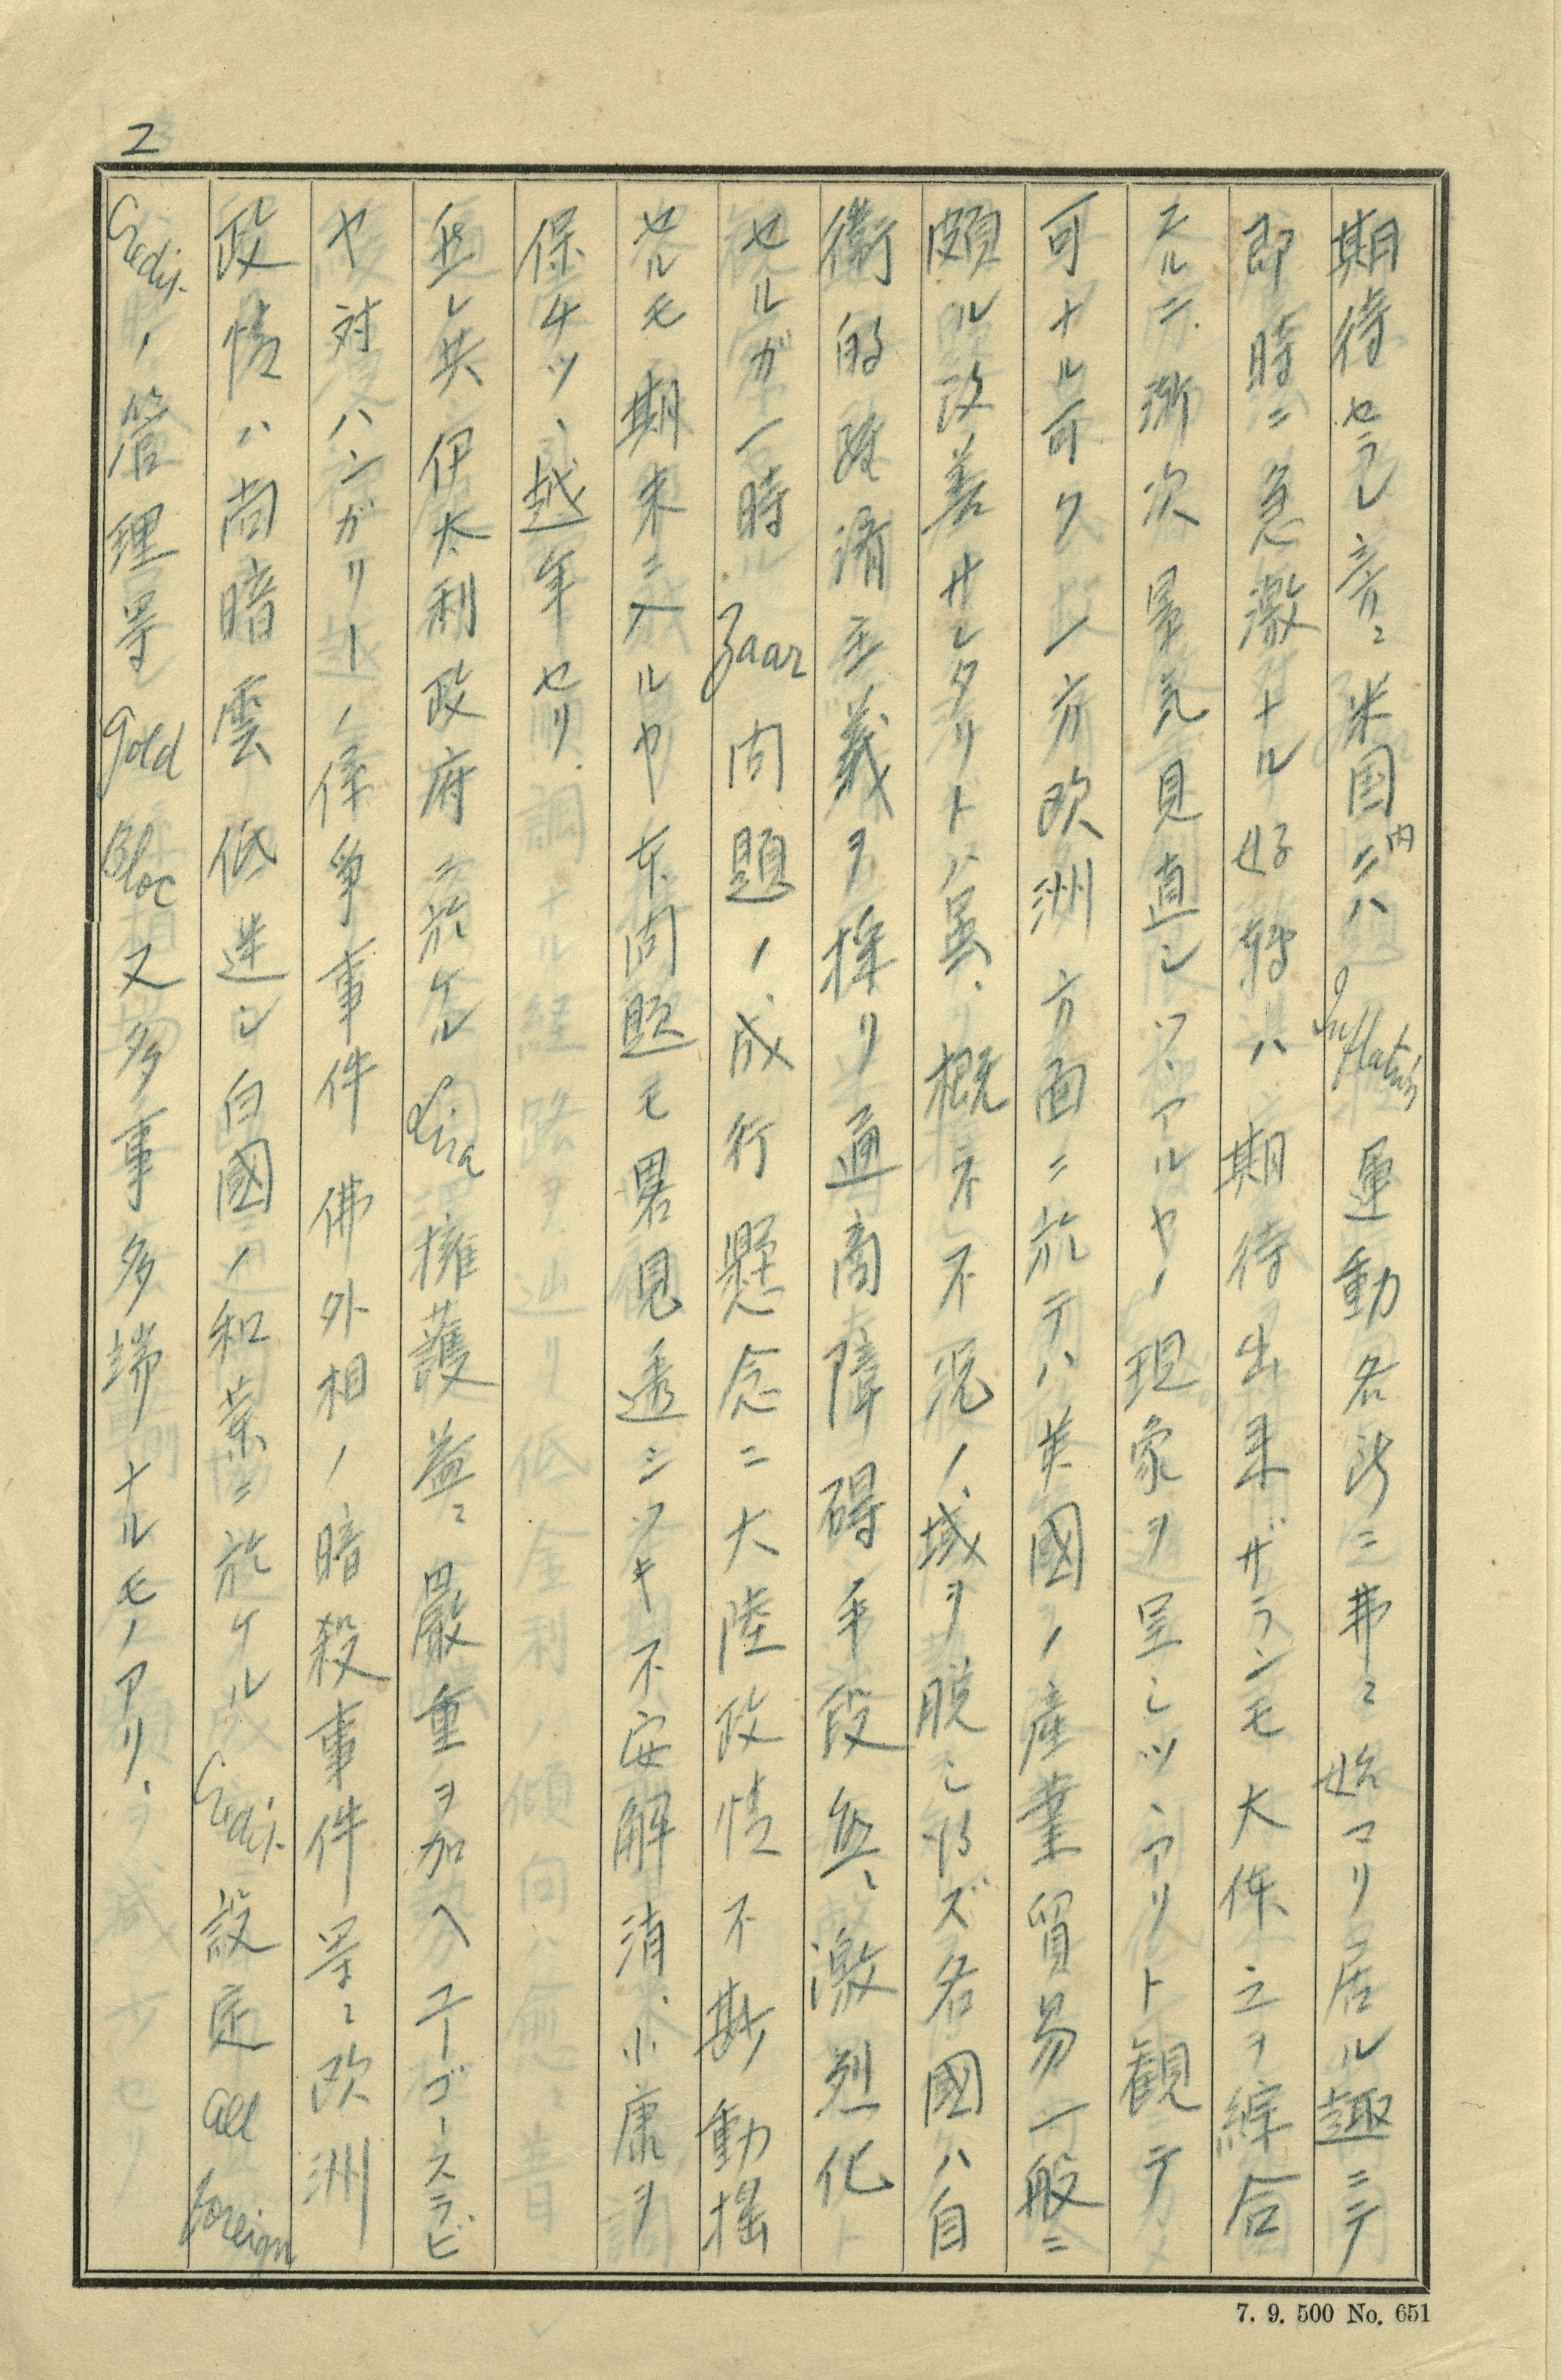 2
期待セラレ旁々米国内ニハInflation運動各所ニ再々始マリ居ル趣ニテ
即時ニ急激ナル好転ハ期待出来ザランモ大体之ヲ綜合
スルニ漸次景気見直シツヽアルヤノ現象ヲ呈シツヽアリト観テ
可ナル可ク一方欧洲方面ニ於テハ英國ノ産業貿易一般ニ
頗ル改善サレタリトハ云へ概不況ノ域ヲ脱シ得ズ各國ハ自
衛的経済主義ヲ採リ通商障碍手段無激烈化
セルガ一時Zaar問題ノ成行懸念ニ大陸政情不尠動揺
セルモ期末ニ入ルヤ本問題モ畧見透シツキ不安解消、小康ヲ
保チツヽ越年セリ.
然レ共伊太利政府ニ於ケルLira擁護益々嚴重ヲ加ヘユーゴースラビ
ヤ対ハンガリーノ係争事件佛外相ノ暗殺事件等々欧洲
政情ハ尚暗雲低迷シ白國ノ和蘭ニ於ケルCredit設定all foreign
Creditノ管理等Gold Bloc又多事多端ナルモノアリ.
7. 9. 500 No. 651